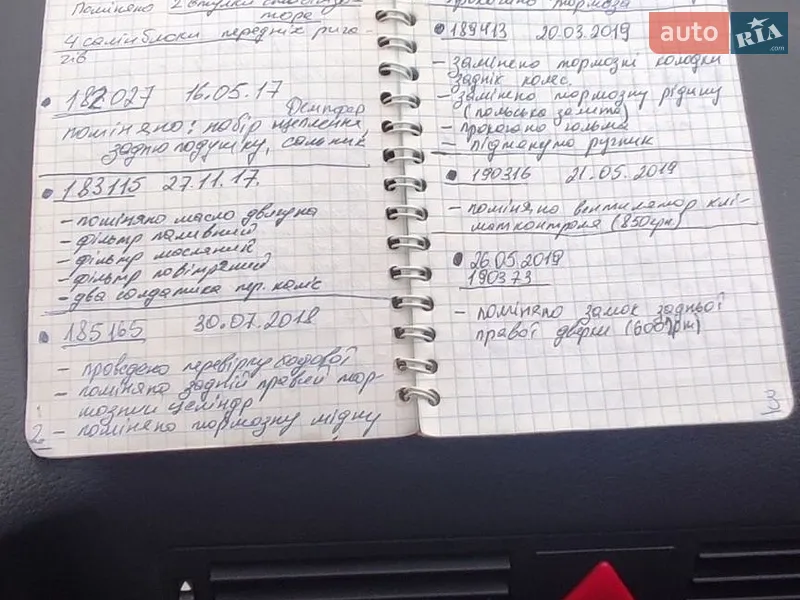 Поміняно 2 втулки стабілізу-
тора
4 салінблоки передніх рича-
гів
182027 16.05.17
Демпфер
поміняно: набір щеплення,
задню подушку, сальник
183115 27.11.17.
- поміняно масло двигуна
- фільтр паливний
- фільтр масляний
- фільтр повітряний
- два солдатика пер. коліс
185165 30.07.2018
- проведено перевірку ходової
- поміняно задній правий тор-
мозний циліндр
- поміняно тормозну мідну
2
прокачано тормоза
189413 20.03.2019
- замінено тормозні колодки
задніх колес.
- замінено тормозну рідину
(польська залита)
- прокачано гальма
- підтянуто ручник
190316 21.05.2019
- поміняно вентилятор клі-
матконтроля (850грн)
26.05.2019
190373
- поміняно замок задньої
правої дверки (600грн)
3
auto RIA .com